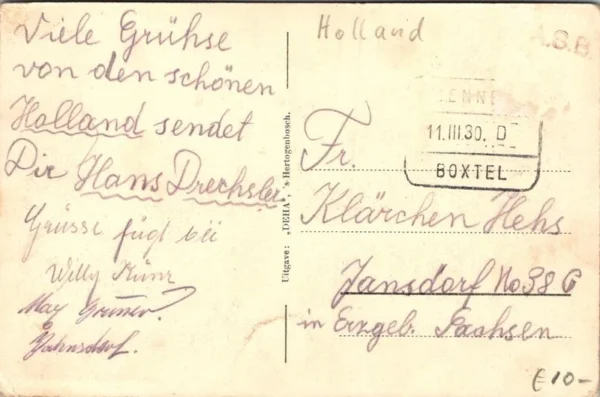 Viele Grühse
von den schönen
Holland sendet
Dir Hans Drechsler
Grüsse fügt bei
Willy Künz
Max Grüner.
Jahnsdorf.
Uitgave: „DEHA", 's-Hertogenbosch.
Holland
A.S.B.
ENNE
11.III.30. D
BOXTEL
Fr.
Klärchen Hehs
Jansdorf No 38 G
in Erzgeb. Sachsen
£10-